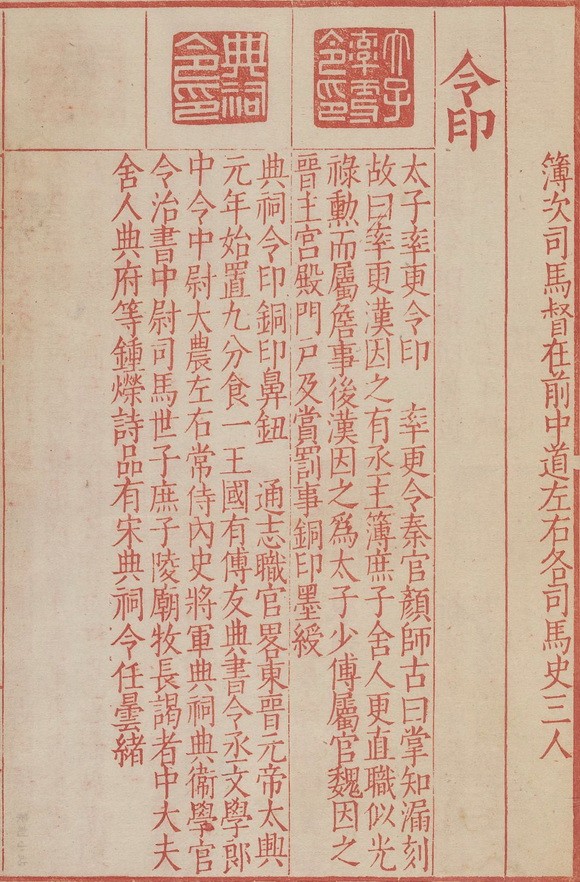 簿次司馬督在前中道左右各司馬史三人
令印
太子率更令印
太子率更令印 率更令秦官顏師古曰掌知漏刻
故曰率更漢因之有丞主簿庶子舍人更直職似光
祿勳而屬詹事後漢因之爲太子少傅屬官魏因之
晉主宮殿門戶及賞罰事銅印墨綬
典祠令印
典祠令印銅印鼻鈕 通志職官畧東晉元帝太興
元年始置九分食一王國有傅友典書令丞文學郎
中令中尉大農左右常侍內史將軍典祠典衞學官
令治書中尉司馬世子庶子陵廟牧長謁者中大夫
舍人典府等鍾爃詩品有宋典祠令任曇緒